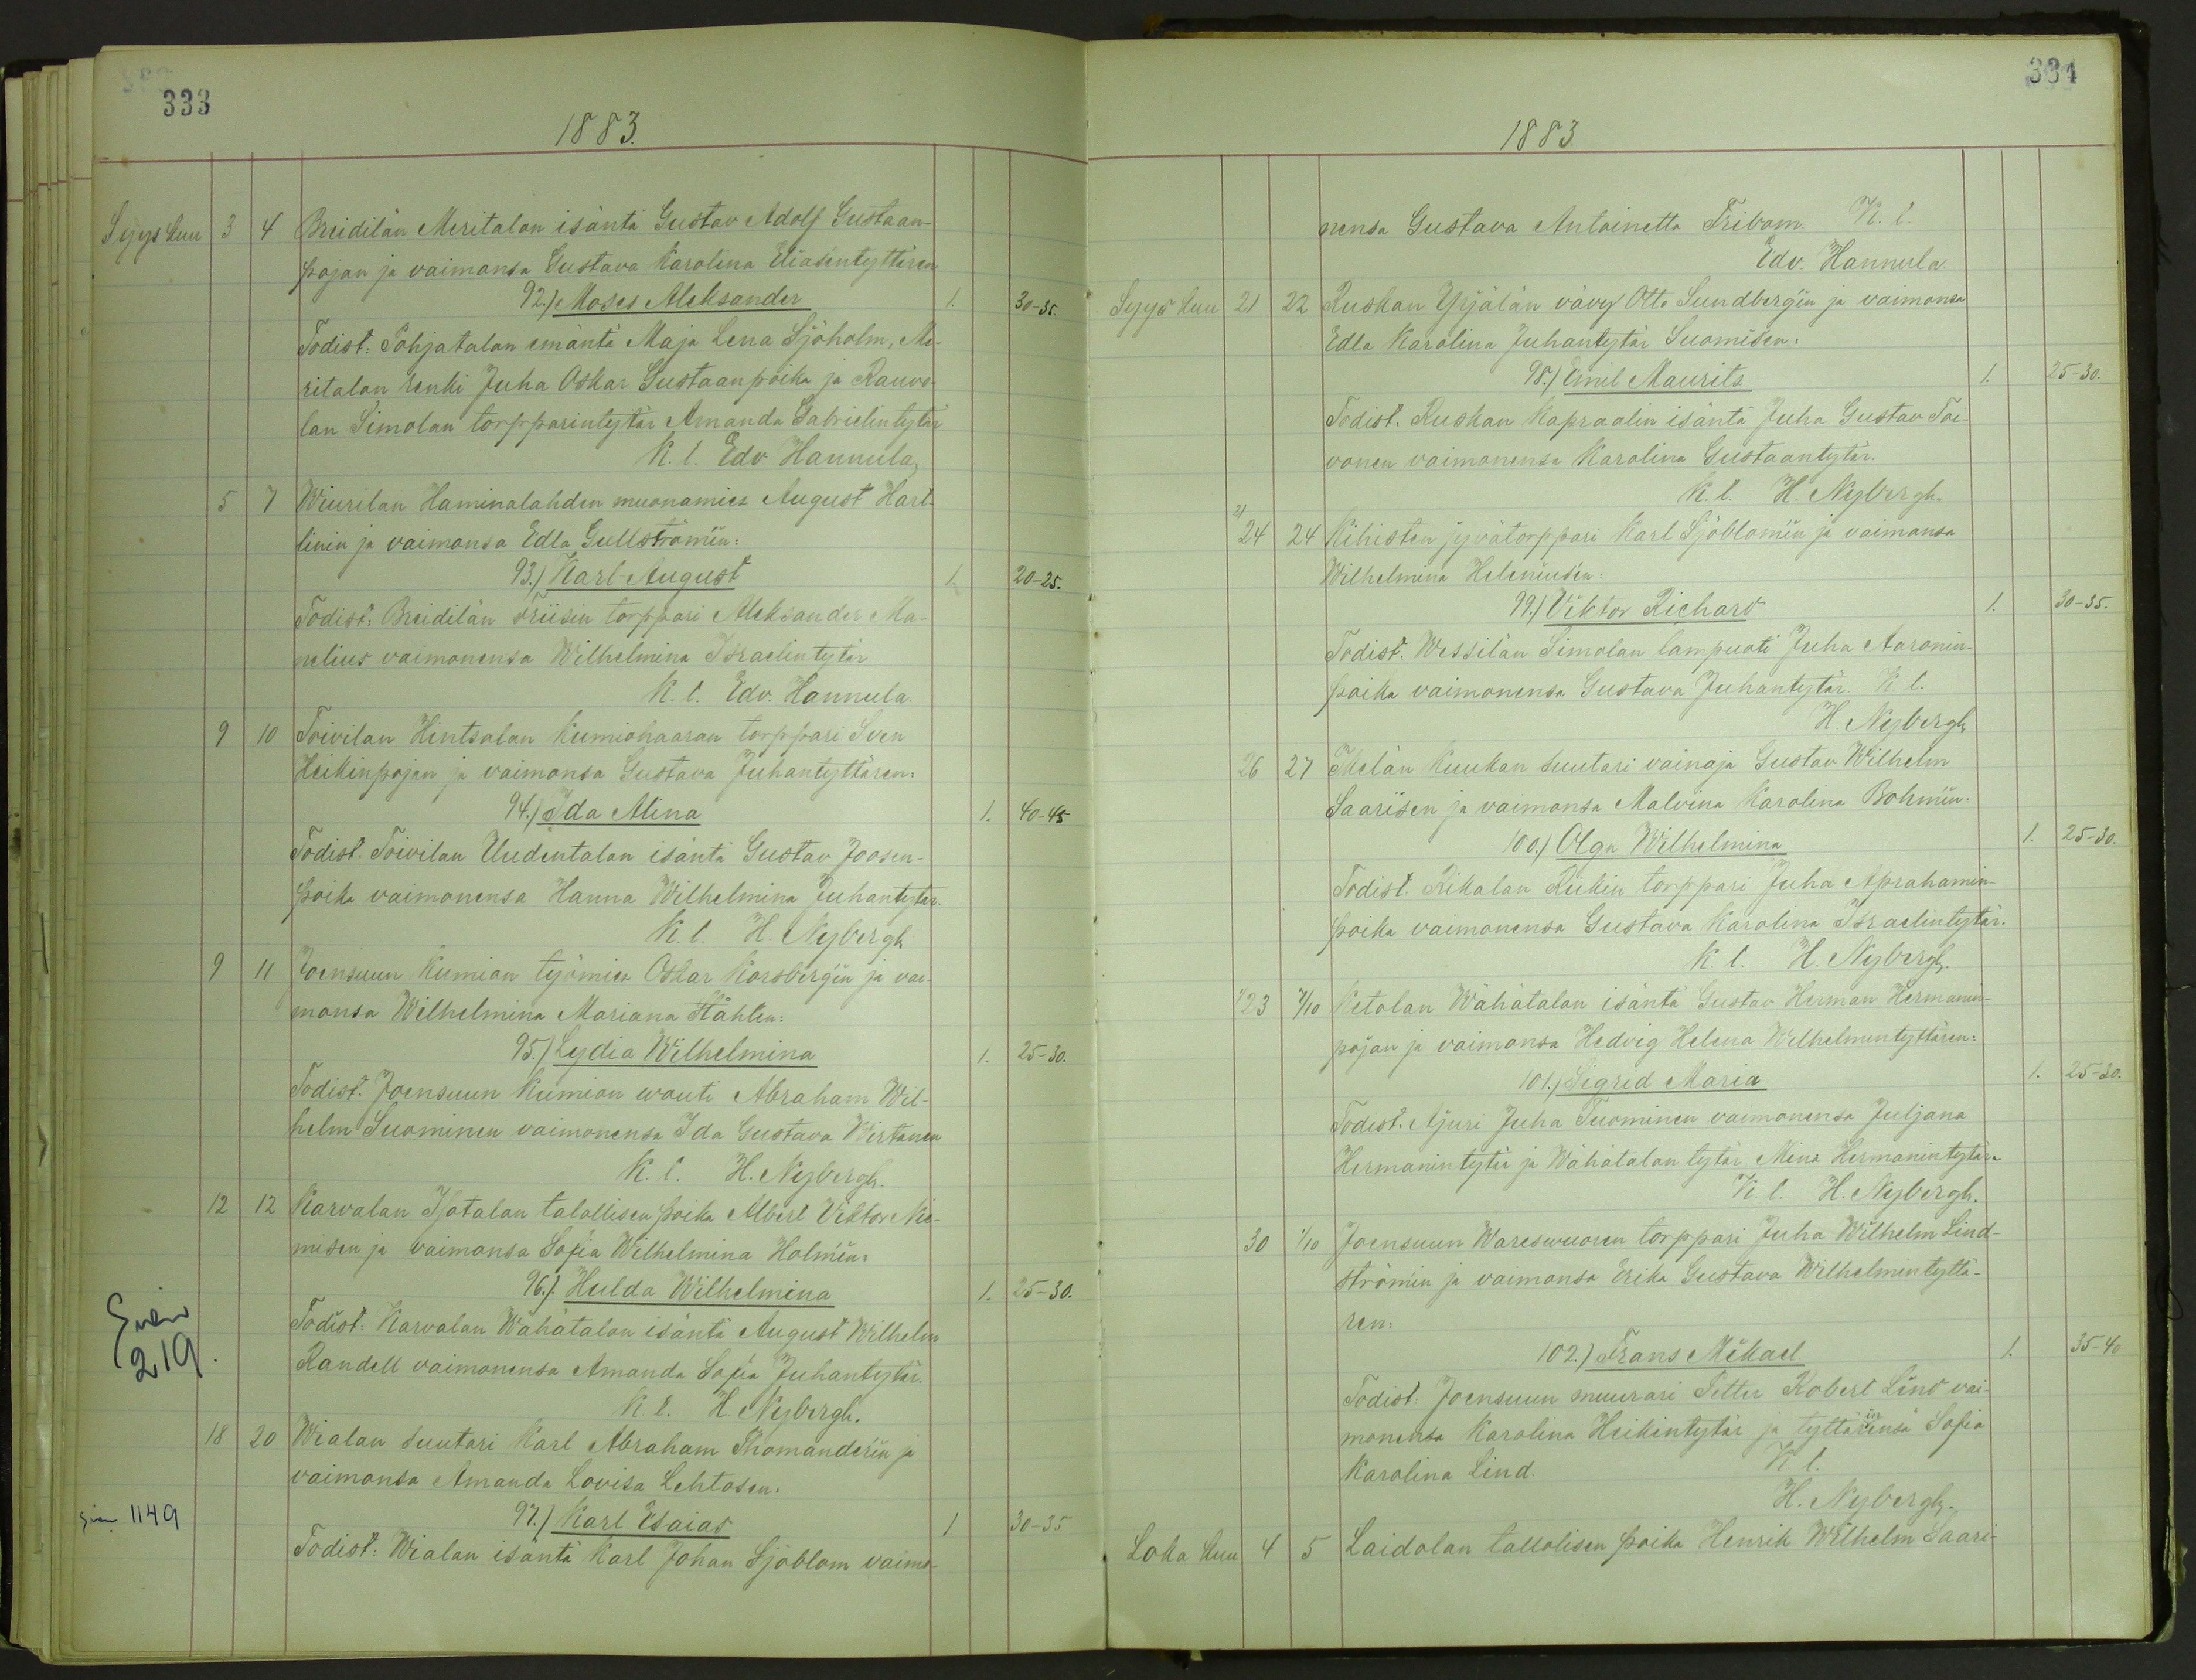 333
1883.
Syys kuu 3 4 Breidilän Meritalon isäntä Gustav Adolf Gustaan-
pojan ja vaimonsa Gustava Karolina Eliasentyttären
92.) Moses Aleksander 1. 30-35.
Todist: Pohjatalon emäntä Maja Lena Sjöholm, Me-
ritalon renki Juha Oskar Gustaanpoika ja Rauvo-
lan Simolan torpparintytär Amanda Gabrielintytär
K. l. Edv Hannula,
5 7 Wiurilan Haminalahden muonamies August Hart-
linin ja vaimonsa Edla Gullströmin:
93.) Karl August 1. 20-25.
Todist: Breidilän Friisin torppari Aleksander Ma-
nelius vaimonensa Wilhelmina Israelintytär
K. l. Edv. Hannula.
9 10 Toivilan Hintsalan Kumiohaaran torppari Sven
Heikinpojan ja vaimonsa Gustava Juhantyttären:
94.) Ida Alina 1. 40-45
Todist. Toivilan Uudentalon isäntä Gustav Joosen-
poika vaimonensa Hanna Wilhelmina Juhantytär.
K. l. H. Nybergh
9 11 Joensuun Kumion työmies Oskar Korsberg'in ja vai-
monsa Wilhelmina Mariana Ståhlen:
95.) Lydia Wilhelmina 1. 25-30.
Todist. Joensuun Kumion wouti Abraham Wil-
helm Suominen vaimonensa Ida Gustava Wirtanen
K. l. H. Nybergh.
12 12 Karvalan Isotalon talollisen poika Albert Viktor Nie-
misen ja vaimonsa Sofia Wilhelmina Holmin:
96.) Hulda Wilhelmina 1. 25-30.
Todist: Karvalan Wähätalon isäntä August Wilhelm
219.
Randell vaimonensa Amanda Sofia Juhantytär.
K. l. H. Nybergh.
18 20 Wialan suutari Karl Abraham Thomander'in ja
vaimonsa Amanda Lovisa Lehtosen:
1149
97.) Karl Esaias 1 30-35
Todist: Wialan isäntä Karl Johan Sjöblom vaimo-
334
1883
nensa Gustava Antoinetta Tribom. K. l.
Edv. Hannula
Syys kuu 21 22 Ruskan Yrjälän vävy Otto Sundberg'in ja vaimonsa
Edla Karolina Juhantytär Suomisen:
98.) Emil Maurits 1. 25-30.
Todist. Ruskan Kapraalin isäntä Juha Gustav Toi-
vonen vaimonensa Karolina Gustaantytär.
K. l. H. Nybergh.
21
24 24 Kihisten jyvätorppari Karl Sjöblomin ja vaimonsa
Wilhelmina Heleniusen:
99.) Viktor Richard 1. 30-35.
Todist. Wessilän Simolan lampuoti Juha Aaronin-
poika vaimonensa Gustava Juhantytär. K l.
H. Nybergh
26 27 Melän Kuukan suutari vainaja Gustav Wilhelm
Saarisen ja vaimonsa Malvina Karolina Bohmin:
100.) Olga Wilhelmina 1. 25-30.
Todist. Rikalan Riikin torppari Juha Aprahamin-
poika vaimonensa Gustava Karolina Israelintytär.
K. l. H. Nybergh.
23 7/10 Ketolan Wähätalon isäntä Gustav Herman Hermanin-
pojan ja vaimonsa Hedvig Helena Wilhelmintyttären:
101.) Sigrid Maria 1. 25-30.
Todist. Ajuri Juha Tuominen vaimonensa Juljana
Hermanintytär ja Wähätalon tytär Mina Hermanintytär.
K. l. H. Nybergh.
30 1/10 Joensuun Wareswuoren torppari Juha Wilhelm Lind-
strömin ja vaimonsa Erika Gustava Wilhelmintyttä-
ren:
102.) Frans Mikael 1. 35-40
Todist: Joensuun muurari Petter Robert Lind vai-
monensa Karolina Heikintytär ja tyttärinensä Sofia
Karolina Lind. K. l.
H. Nybergh.
Loka kuu 4 5 Laidolan tallolisen poika Henrik Wilhelm Saari-